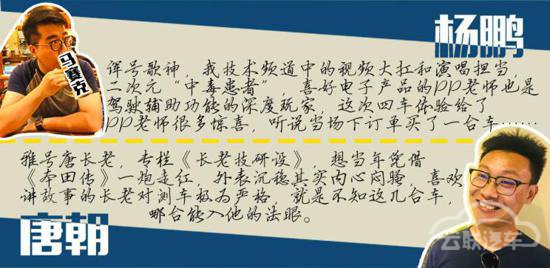 杨鹏
马赛克
诨号歌神，我技术频道中的视频大扛和演唱担当，
二次元“中毒患者”，喜好电子产品的PP老师也是
驾驶辅助功能的深度玩家，这次四车体验给了
PP老师很多惊喜，听说当场下订单买了一台车……
雅号唐长老，专栏《长老技研设》，想当年凭借
《本田传》一炮走红，外表沉稳其实内心闷骚，喜欢
讲故事的长老对测车极为严格，就是不知这几台车，
哪台能入他的法眼。
唐朝
云联汽车